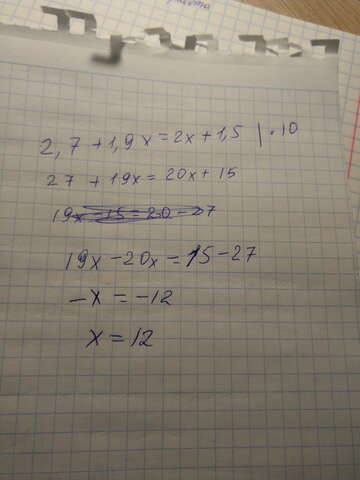 2,7 + 1,9x = 2x + 1,5 | · 10
27 + 19x = 20x + 15
19x - 15 = 20 - 27
19x - 20x = 15 - 27
-x = -12
x = 12